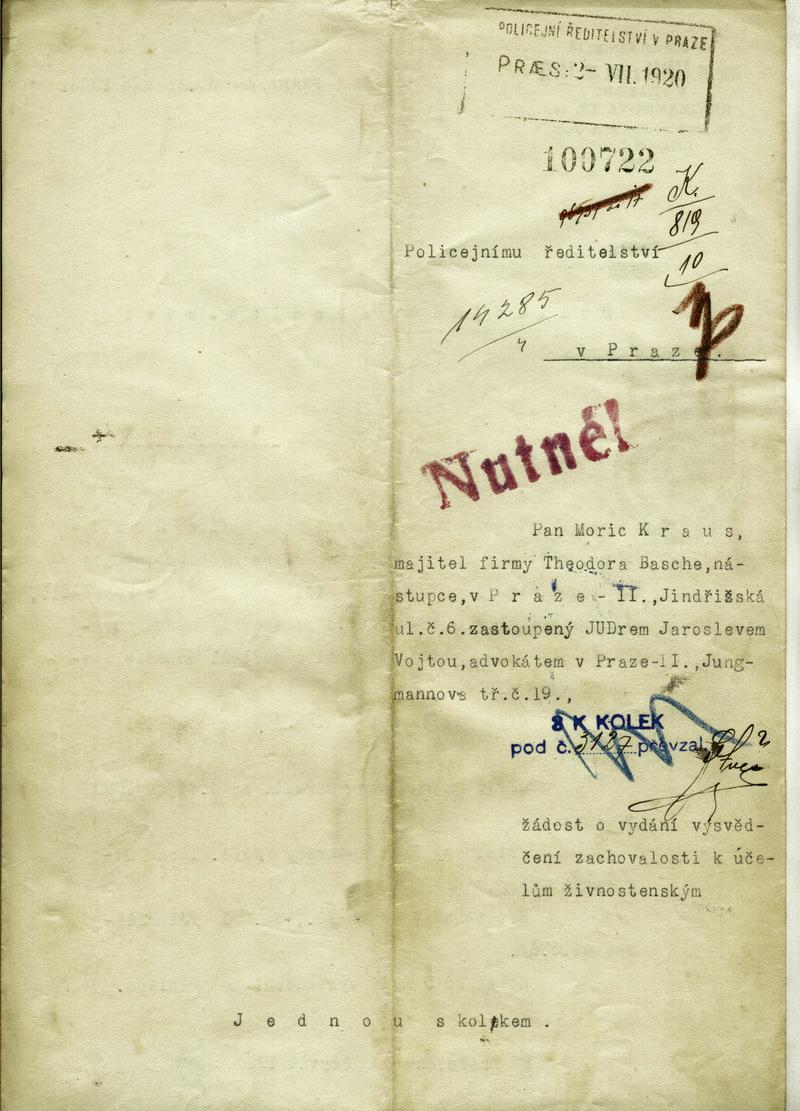 POLICEJNÍ ŘEDITELSTVÍ V PRAZE
PRÆS: 2- VII. 1920
100722
K.
819
10
Policejnímu ředitelství
14285
4
v Praze.
Nutné!
Pan Moric Kraus,
majitel firmy Theodora Basche,ná-
stupce,v Praze - II.,Jindřišská
ul.č.6.zastoupený JUDrem Jaroslevem
Vojtou,advokátem v Praze-II.,Jung-
mannova tř.č.19.,
8 K KOLEK
pod č. 3127 převzal
žádost o vydání vysvěd-
čení zachovalosti k úče-
lům živnostenským
Jednou s kolkem .